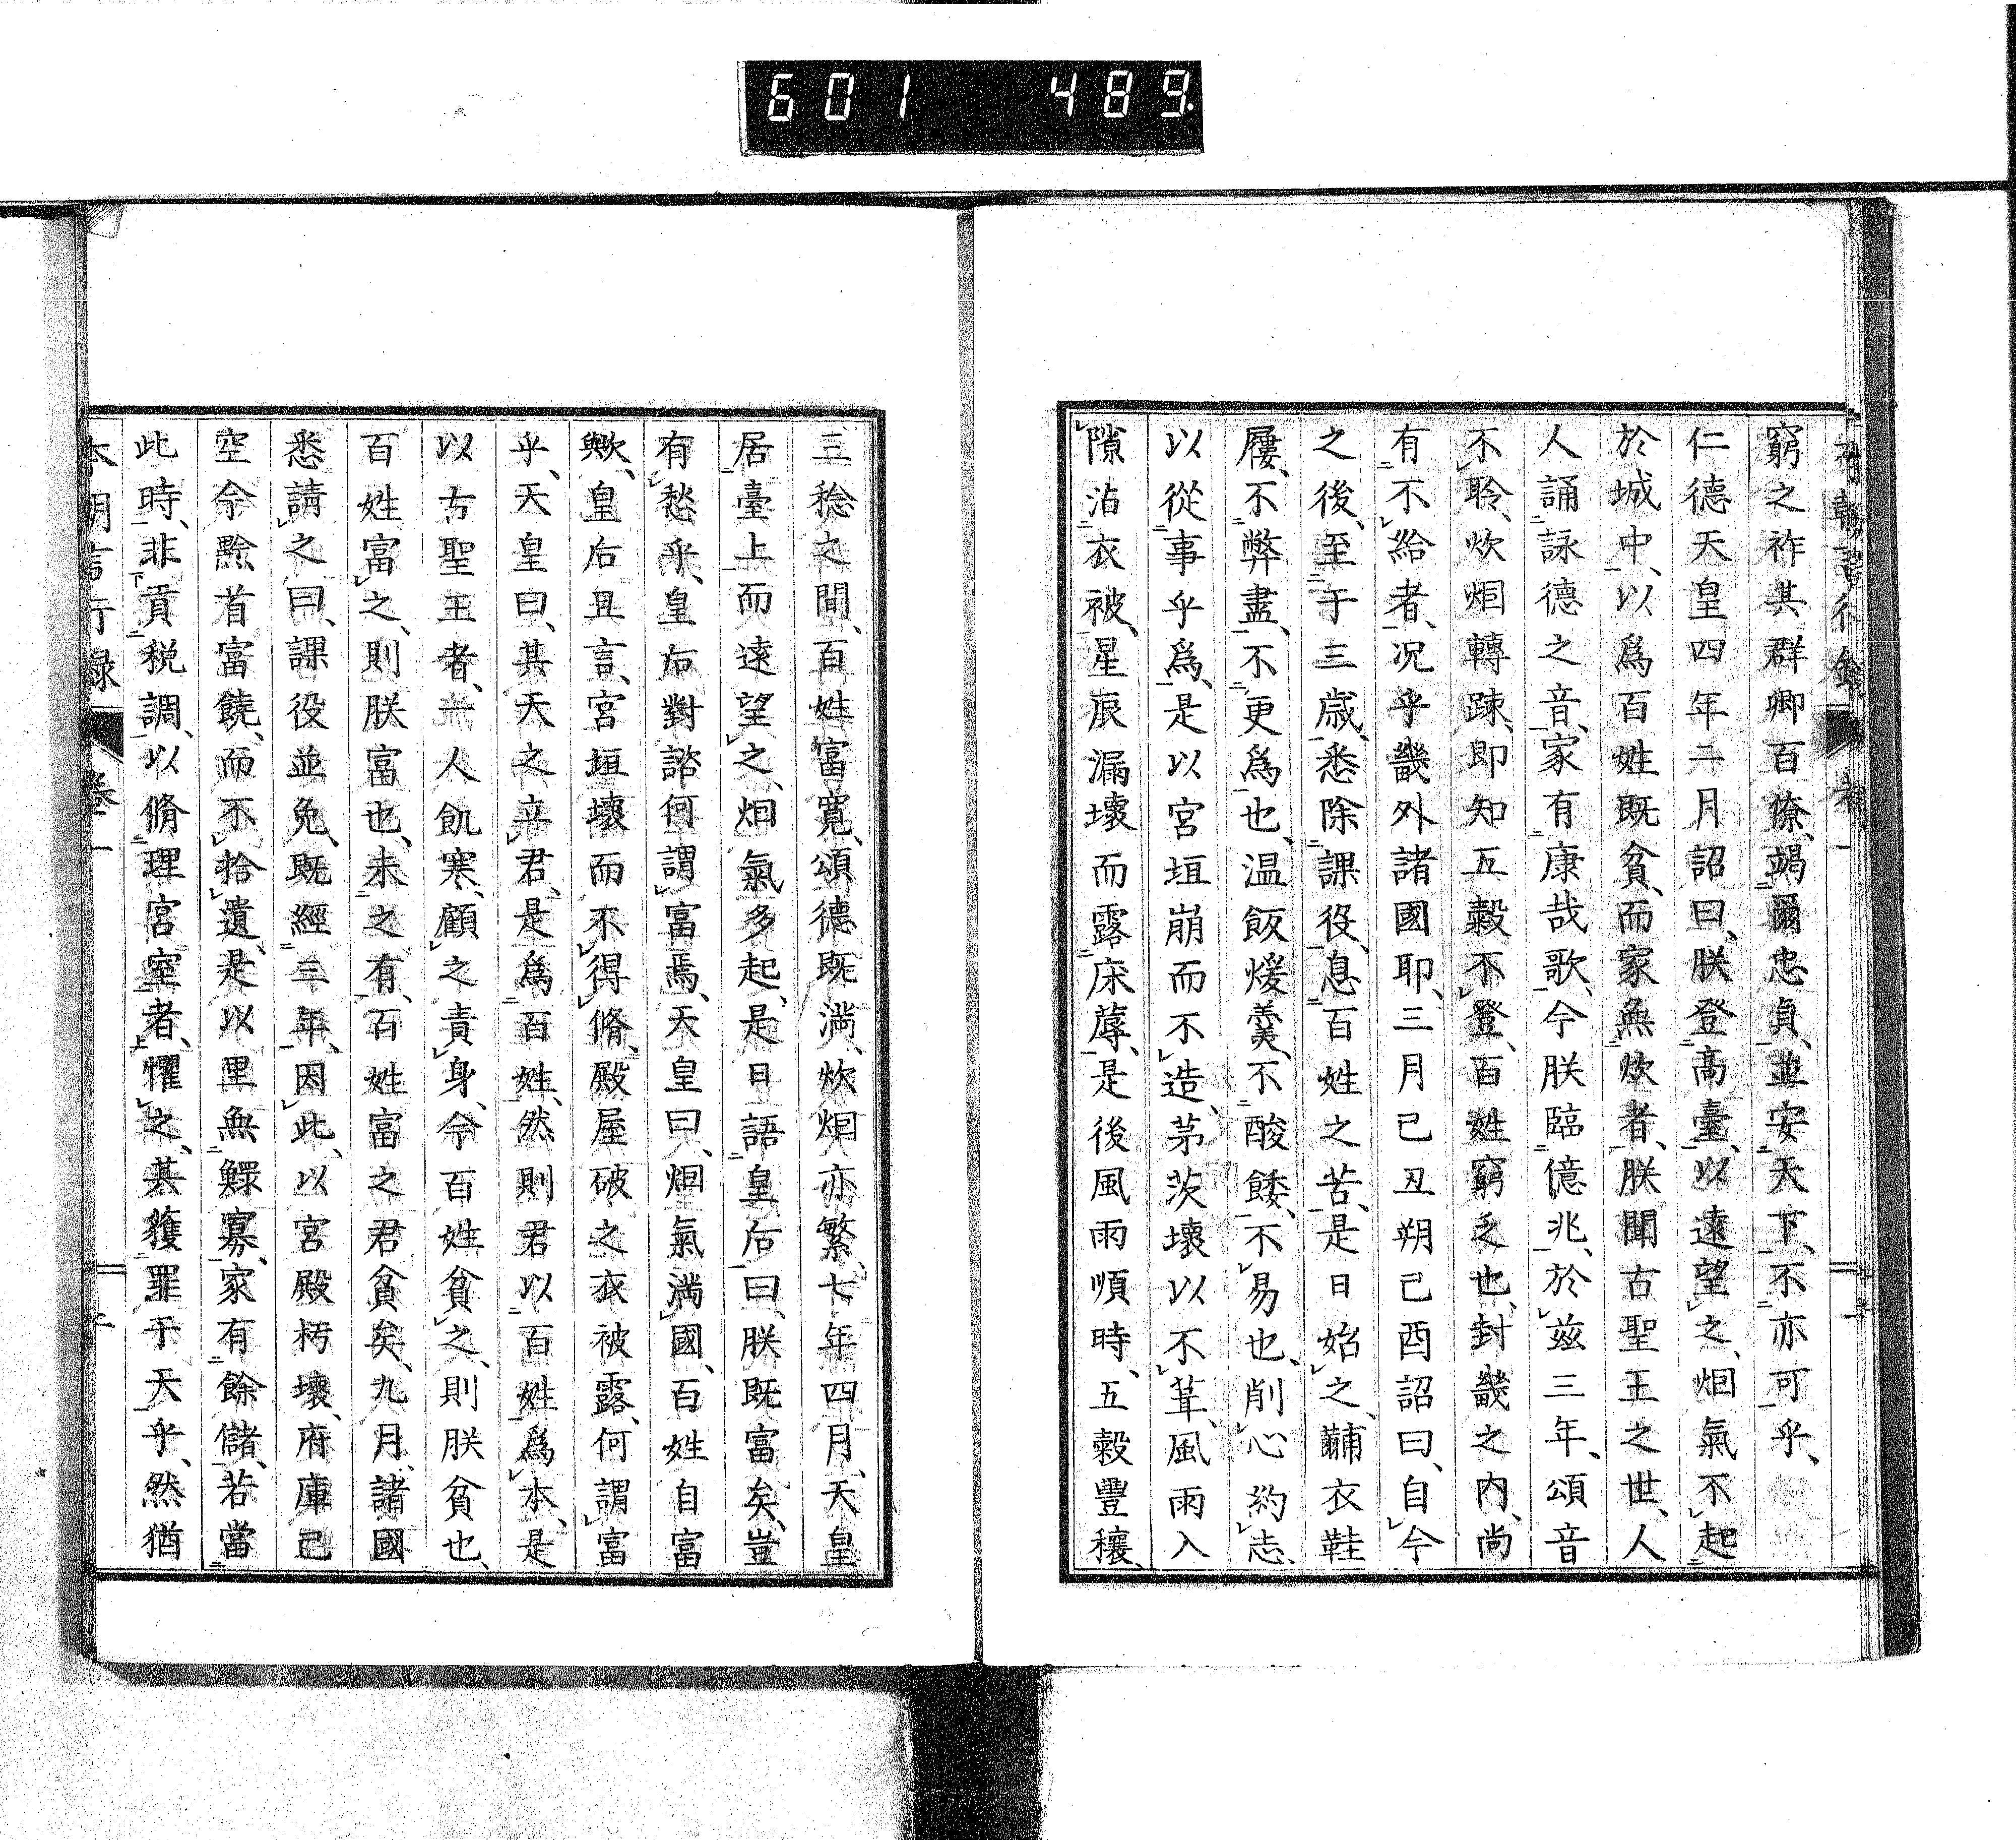 601 489
窮之祚其群卿百僚、竭爾忠貞、並安天下、不亦可乎、
仁德天皇四年二月詔曰、朕登高臺、以遠望之、烟氣不起
於城中、以爲百姓既貧、而家無炊者、朕聞古聖王之世、人
人誦詠德之音、家有康哉歌、今朕臨億兆、於茲三年、頌音
不聆、炊烟轉疎、即知五穀不登、百姓窮乏也、封畿之内、尚
有不給者、况乎畿外諸國耶、三月己丑朔己酉詔曰、自今
之後、至于三歲、悉除課役、息百姓之苦、是日始之、黼衣鞋
屨、不弊盡、不更爲也、温飯煖羹、不酸餧、不易也、削心約志、
以從事乎爲、是以宮垣崩而不造、茅茨壞以不葺、風雨入
隙沾衣被、星辰漏壞而露床蓐、是後風雨順時、五穀豐穰、
三稔之間、百姓富寬、頌德既滿、炊烟亦繁、七年四月、天皇
居臺上而遠望之、烟氣多起、是日語皇后曰、朕既富矣、豈
有愁乎、皇后對諮何謂富焉、天皇曰、烟氣滿國、百姓自富
歟、皇后且言、宮垣壞而不得脩、殿屋破之衣被露、何謂富
乎、天皇曰、其天之立君、是爲百姓、然則君以百姓爲本、是
以古聖王者、一人飢寒、顧之責身、今百姓貧之、則朕貧也、
百姓富之、則朕富也、未之有、百姓富之君貧矣、九月、諸國
悉請之曰、課役並免、既經三年、因此、以宮殿朽壞、府庫已
空今黔首富饒、而不拾遺、是以里無鰥寡、家有餘儲、若當
此時、非貢税調、以脩理宮室者、懼之、其獲罪于天乎、然猶
本朝言行録 卷一